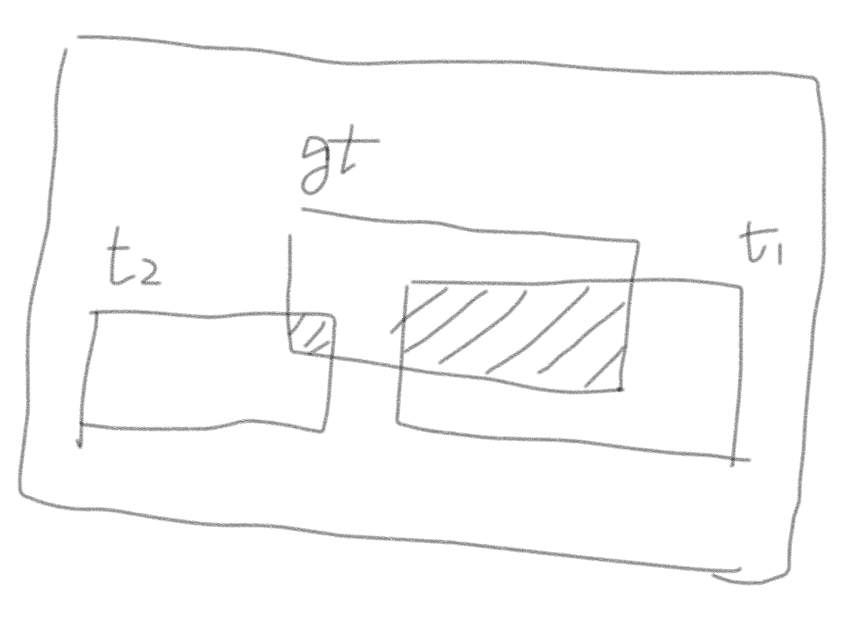 gt
t2
t1